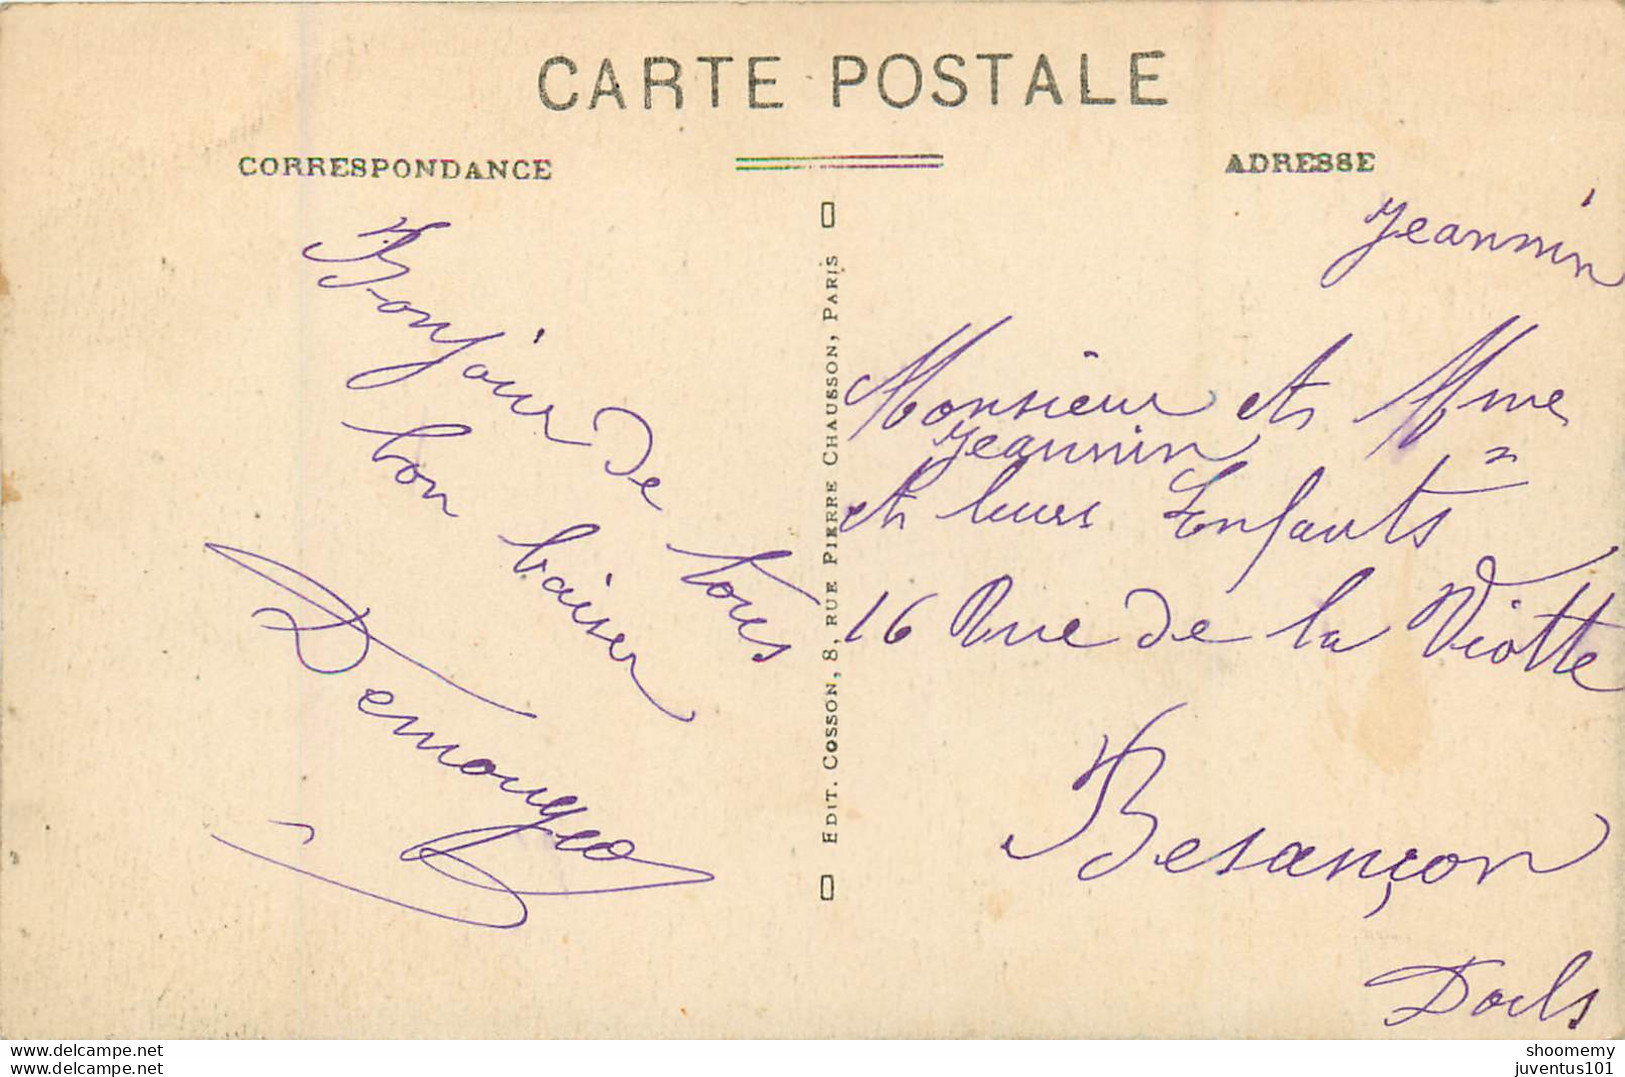 CARTE POSTALE
CORRESPONDANCE
ADRESSE
Bonjour de tous
bon baiser
Demougeo
EDIT. COSSON, 8, RUE PIERRE CHAUSSON, PARIS
Jeannin
Monsieur et Mme
Jeannin
et leurs Enfants
16 Rue de la Viotte
Besançon
Doubs
www.delcampe.net
shoomemy
juventus101